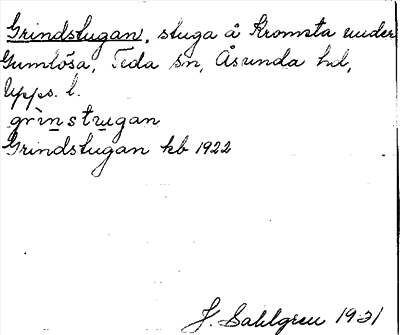 Grindstugan, stuga å Kromsta under
Gumlösa, Teda sn, Åsunda hd,
Upps. l.
grinstugan
Grindstugan kb 1922
J. Sahlgren 1931